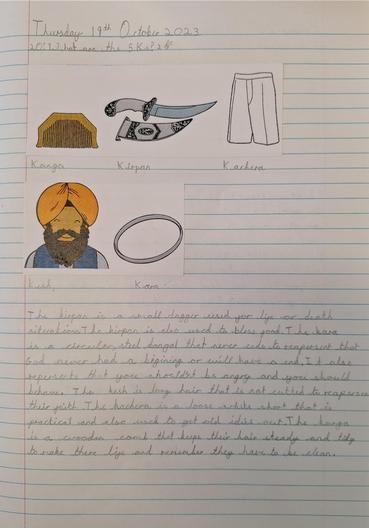 Thursday 19th October 2023
What are the 5 Ks?
Kanga Kirpan Kachera
Kesh, Kara
The kirpan is a small dagger used for life or death
situations. The kirpan is also used to bless food. The kara
is a circular, steel bangal that never ends to reapresent that
God never had a begining or will have a end. It also
represents that you shouldn't be angry and you should
behave. The kesh is long hair that is not cutted to reaprese
their faith. The kachera is a loose white short that is
practical and also used to get old idias out. The kanga
is a wooden comb that keeps their hair steady and tidy
to make there life and remember they have to be clean.